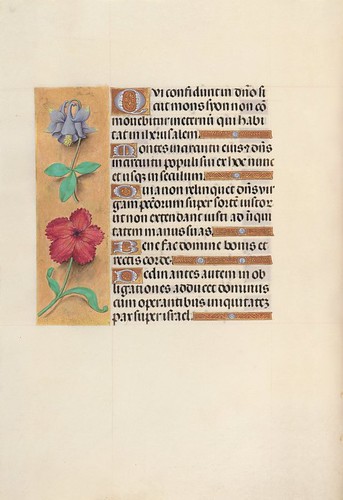 Qui confidunt in dño si
cut mons syon non cõ
mouebitur in eternũ qui habi
tat in ihrusalem.
Montes in circuitu eius et dñs
in circuitu populi sui ex hoc nunc
et usqz in seculum.
Quia non relinquet dñs vir
gam peccatorum super sortẽ iustor
ut non extendant iusti ad iniqui
tatem manus suas.
Bene fac domine bonis et
rectis corde.
Declinantes autem in ob
ligationes adducet dominus
cum operantibus iniquitatẽ
pax super israel.